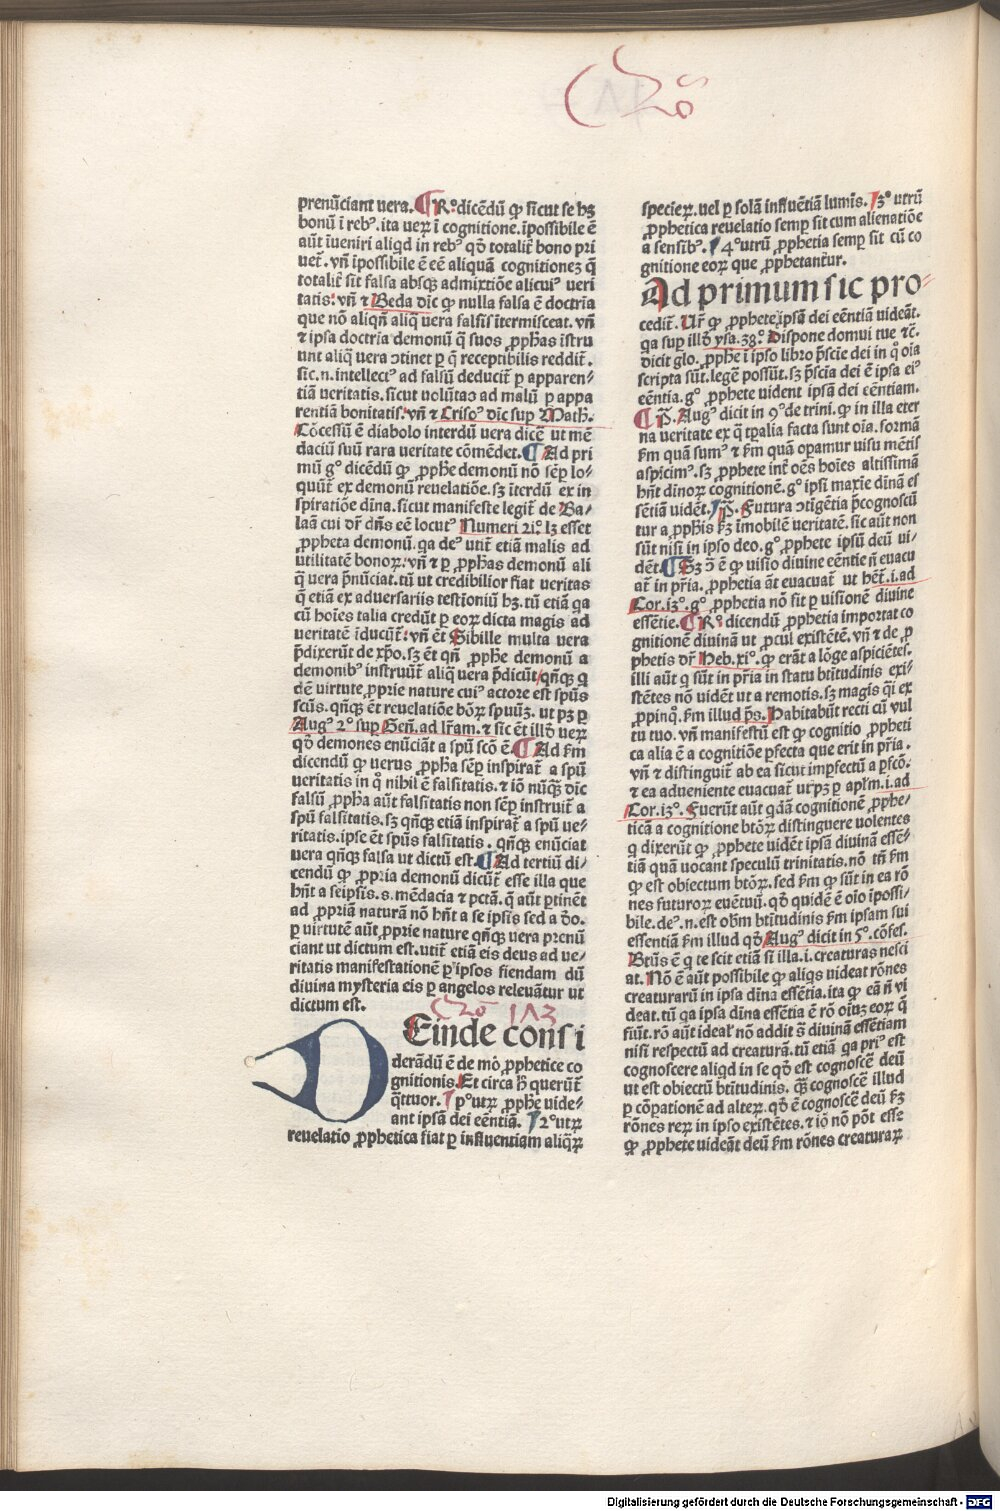 prenũciant vera. ¶ Rº dicẽdũ ꝙ sicut se hꝫ
bonũ ĩ rebꝰ. ita verꝝ ĩ cognitione. ĩpossibile ẽ
aũt ĩveniri aliqd in rebꝰ qđ totalit̃ bono pri
vet̃. vñ ĩpossibile ẽ eẽ aliquã cognitionez q̃
totalit̃ sit falsa absqꝫ admixtiõe alicuiꝰ veri
tatis. vñ ⁊ Beda dic̃ ꝙ nulla falsa ẽ doctria
que nõ aliqñ aliq̃ vera falsis ĩtermisceat. vñ
⁊ ipsa doctria demonũ q̃ suos ꝓphas ĩstru
unt aliq̃ vera ↄtinet p q̃ receptibilis reddit̃.
sic. n. intellectꝰ ad falsũ deducit̃ p apparen⸗
tiã veritatis. sicut volũtas ad malũ p appa
rentiã bonitatis. vñ ⁊ Crisoꝰ dic̃ sup Math.
Cõcessũ ẽ diabolo interdũ vera dicẽ ut mẽ
daciũ suũ rara veritate cõmẽdet. ¶ Ad pri
mũ gº dicẽdũ ꝙ ꝓphe demonũ nõ semp lo⸗
quũt̃ ex demonũ revelatiõe. sꝫ ĩterdũ ex in
spiratiõe diĩna. sicut manifeste legit̃ de Ba⸗
laã cui dr̃ dñs eẽ locutꝰ Numeri 21º. lꝫ esset
ꝓpheta demonũ. qa deꝰ utit̃ etiã malis ad
utilitatẽ bonoꝝ. vñ ⁊ p ꝓphas demonũ ali
q̃ vera p̃nũciat. tũ ut credibilior fiat veritas
q̃ etiã ex adversariis testĩoniũ hꝫ. tũ etiã qa
cũ hoĩes talia credũt p eoꝝ dicta magis ad
veritatẽ ĩducũt̃. vñ ẽt Sibille multa vera
p̃dixerũt de xp̃o. sꝫ ẽt qñ ꝓphe demonũ a
demonibꝰ instruũt̃ aliq̃ vera p̃dicũt qñqꝫ q
dẽ virtute ꝓprie nature cuiꝰ actore est spũs
scũs. qñqꝫ ẽt revelatiõe bõꝝ spuũꝫ. ut pꝫ p
Augꝰ 2º sup Geñ. ad lr̃am. ⁊ sic ẽt illđ verꝝ
qđ demones enũciãt a spũ scõ ẽ. ¶ Ad ẜm
dicendũ ꝙ verus ꝓpha semp inspirat̃ a spũ
veritatis in q̊ nihil ẽ falsitatis. ⁊ iõ nũqꝫ dic̃
falsũ ꝓpha aũt falsitatis non semp instruit̃ a
spũ falsitatis. sꝫ qñqꝫ etiã inspirat̃ a spũ ve⸗
ritatis. ipse ẽt spũs falsitatis. qñqꝫ enũciat
vera qñqꝫ falsa ut dictũ est. ¶ Ad tertiũ di⸗
cendũ ꝙ ꝓpria demonũ dicũt̃ esse illa que
hñt a seipsis. s. mẽdacia ⁊ pctã. q̃ aũt ptinẽt
ad ꝓpriã naturã nõ hñt a se ipsis sed a đo.
p virtutẽ aũt ꝓprie nature qñqꝫ vera prenũ
ciant ut dictum est. utit̃ etiã eis deus ad ve⸗
ritatis manifestationẽ p ipsos fiendam dũ
divina mysteria eis p angelos relevãtur ut
dictum est.
Deinde consi
derãdũ ẽ de mõ ꝓphetice co
gnitionis. Et circa hͦ querũt̃
q̃ttuor. pº utrꝝ ꝓphe vide⸗
ant ipsã dei eẽntiã. 2º utrꝝ
revelatio ꝓphetica fiat p influentiam aliqꝝ
specieꝝ. vel p solã influẽtiã lumĩs. 3º utrũ
ꝓphetica revelatio semp sit cum alienatiõe
a sensibꝰ. 4º utrũ ꝓphetia semp sit cũ co
gnitione eoꝝ que ꝓphetant̃ur.
Ad primum sic pro⸗
cedit̃. Ur̃ ꝙ ꝓphete ipsã dei eẽntiã videãt.
qa sup illđ ysa. 38º. Dispone domui tue ⁊c̃.
dicit glo. ꝓphe ĩ ipso libro p̃scie dei in q̊ oĩa
scripta sũt. legẽ possũt. sꝫ p̃scia dei ẽ ipsa eiꝰ
eẽntia. gº ꝓphete vident ipsã dei eẽntiam.
¶ P̃. Augꝰ dicit in 9º de trini. ꝙ in illa eter
na veritate ex q̃ tp̃alia facta sunt oĩa. formã
ẜm quã sumꝰ ⁊ ẜm quã opamur visu mẽtis
aspicimꝰ. sꝫ ꝓphete int̃ oẽs hoĩes altissimã
hñt diĩnoꝝ cognitionẽ. gº ipsi maxĩe diĩnã es
sẽtiã vidẽt. P̃. Futura ↄtĩgẽtia p̃cognoscũ
tur a ꝓphis ẜꝫ ĩmobilẽ veritatẽ. sic aũt non
sũt nisi in ipso deo. gº ꝓphete ipsũ deũ vi⸗
dẽt. ¶ Sꝫ ↄ̃ ẽ ꝙ visio divine eẽntie ñ evacu
at̃ in pr̃ia. ꝓphetia ãt evacuat̃ ut hẽt̃. i. ad
Cor. 13º. gº ꝓphetia nõ fit p visionẽ divine
essẽtie. ¶ Rº. dicendũ ꝓphetia importat co
gnitionẽ divinã ut ꝓcul existẽtẽ. vñ ⁊ de ꝓ
phetis dr̃ Heb. xiº. ꝙ erãt a lõge aspiciẽtes.
illi aũt q sũt in pr̃ia in statu btĩtudinis exi⸗
stẽtes nõ vidẽt ut a remotis. sꝫ magis q̃i ex
ꝓpinq̊. ẜm illud p̃s. Habitabũt recti cũ vul
tu tuo. vñ manifestũ est ꝙ cognitio ꝓpheti
ca alia ẽ a cognitiõe pfecta que erit in pr̃ia.
vñ ⁊ distinguit̃ ab ea sicut impfectũ a pfc̃o.
⁊ ea adveniente evacuat̃ ut pꝫ p apl̃m. i. ad
Cor. 13º. Fuerũt aũt qđã cognitionẽ ꝓphe⸗
ticã a cognitione btõꝝ distinguere volentes
q dixerũt ꝙ ꝓphete vidẽt ipsã divinã essẽ⸗
tiã quã vocant speculũ trinitatis. nõ tñ ẜm
ꝙ est obiectum btõꝝ. sed ẜm ꝙ sũt in ea rõ
nes futuroꝝ evẽtuũ. qđ quidẽ ẽ oĩo ĩpossi⸗
bile. deꝰ. n. est obm btĩtudinis ẜm ipsam sui
essentiã ẜm illud qđ Augꝰ dicit in 5º. cõfes.
Btũs ẽ q te scit etiã si illa. i. creaturas nesci
at. Nõ ẽ aũt possibile ꝙ aliqs videat rõnes
creaturarũ in ipsa diĩna essẽtia. ita ꝙ eã ñ vi
deat. tũ qa ipsa diĩna essẽtia ẽ rõ oĩuꝫ eoꝝ q̃
fiũt. rõ aũt idealꝭ nõ addit s̃ divinã essẽtiam
nisi respectũ ad creaturã. tũ etiã qa priꝰ est
cognoscere aliqd in se qđ est cognoscẽ deũ
ut est obiectũ btĩtudinis. q̃ꝫ cognoscẽ illud
p cõpationẽ ad alteꝝ. qđ ẽ cognoscẽ deũ ẜꝫ
rõnes reꝝ in ipso existẽtes. ⁊ iõ nõ põt esse
ꝙ ꝓphete videãt deũ ẜm rõnes creaturaꝝ
Digitalisierung gefördert durch die Deutsche Forschungsgemeinschaft - DFG